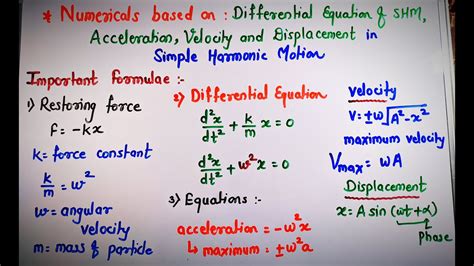 * Numericals based on : Differential Equation of SHM,
Acceleration, Velocity and Displacement in
Simple Harmonic Motion
Important Formulae :-
1) Restoring force
F = -kx
k = force constant
k/m = ω²
ω = angular
velocity
m = mass of particle
2) Differential Equation
d²x/dt² + k/m x = 0
d²x/dt² + ω²x = 0
3) Equations :-
acceleration = -ω²x
↳ maximum = ±ω²a
velocity
V = ±ω√A²-x²
maximum velocity
Vmax = ωA
Displacement
x = A sin (ωt + α)
↳ Phase